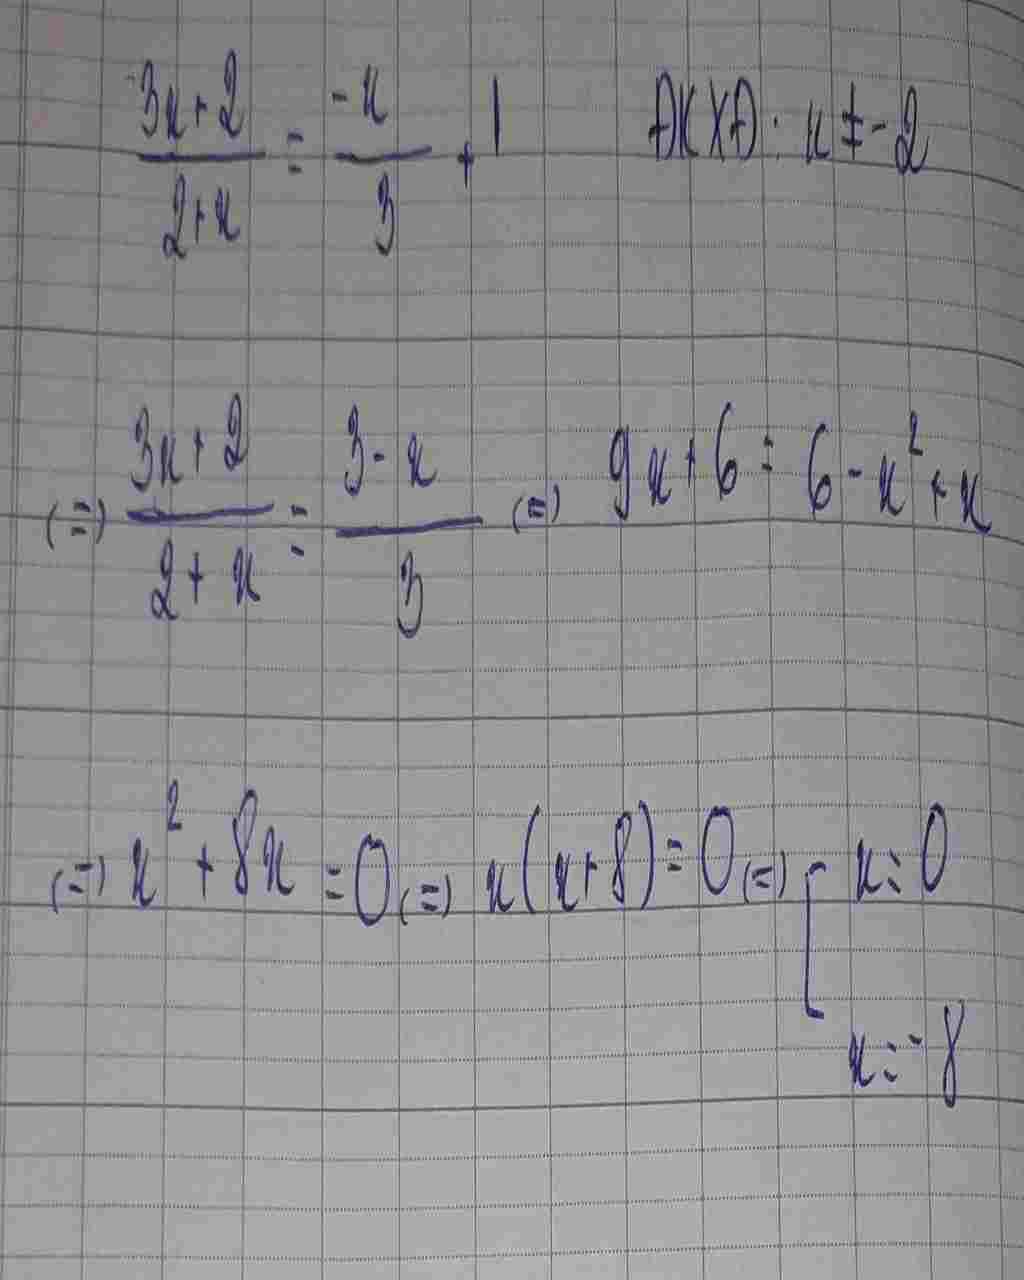 (3x+2)/(2+x) = -x/3 + 1 ĐKXĐ: x ≠ -2
(=) (3x+2)/(2+x) = (3-x)/3 (=) 9x+6 = 6-x²+x
(=) x²+8x = 0 (=) x(x+8) = 0 (=) [ x = 0
x = -8